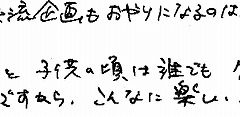 流企画もおやりになるのは
と子供の頃は誰でも
ですから、こんなに楽しい